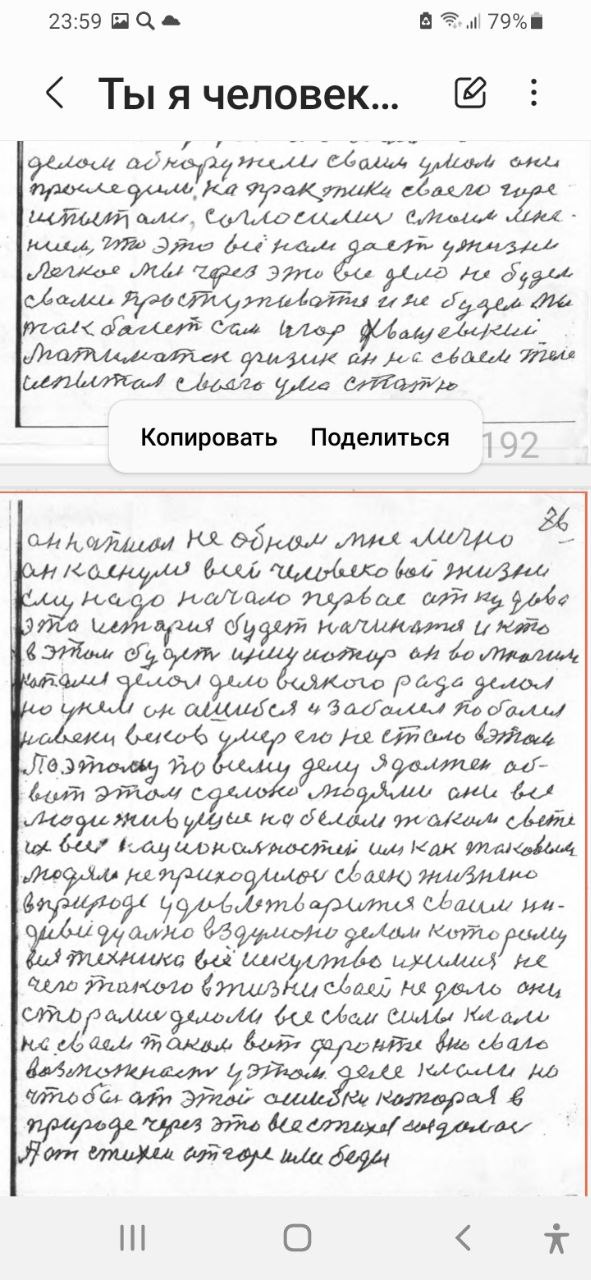 23:59
79%
Ты я человек...
делом обнаружели своим умом они
проследили, на практики своего горе
испытали, согласились смоим мне-
нием, что это всё нам дает ужизни
легкое мы через это все дело не будем
свами простуживатся и не будем мы
так болет сам Игор Хвощевский
Матиматек физик он на своем теле
испытал своего ума статю
Копировать Поделиться
192
76
он написал не обном мне лично
он каснулся всей человековой жизни
ему надо начало первае откудова
эта история будет начинатся и кто
в этом будет инициотор он во многим
делал дело всякого рада делал
но унем он ашибся и заболел поболел
навеки веков умер его не стало вэтом
Поэтому по всему делу я должен об-
вот этом сделоно людями они все
люди живущие на белом таком свете
их всех национальностей им как таковым
людям не приходилос своею жизнею
вприроде удовлетварится своим ин-
дивидуално вздумоно делом которому
вся техника всё искуство ихимия не
чего такого вжизни своей не дало они
сторалис делали все свои силы клали
на своем таком вот фронте всю сваю
возможност уэтом деле клали но
чтобы от этой ошибки которая в
природе через это все стихея создолас
А от стихеи от горе или беды